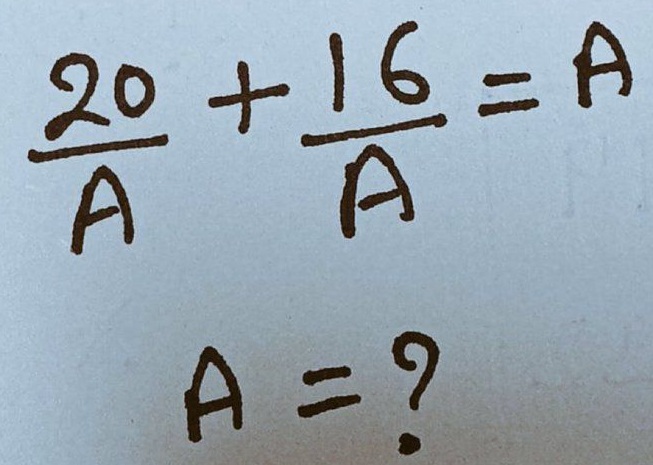 20/A + 16/A = A
A = ?